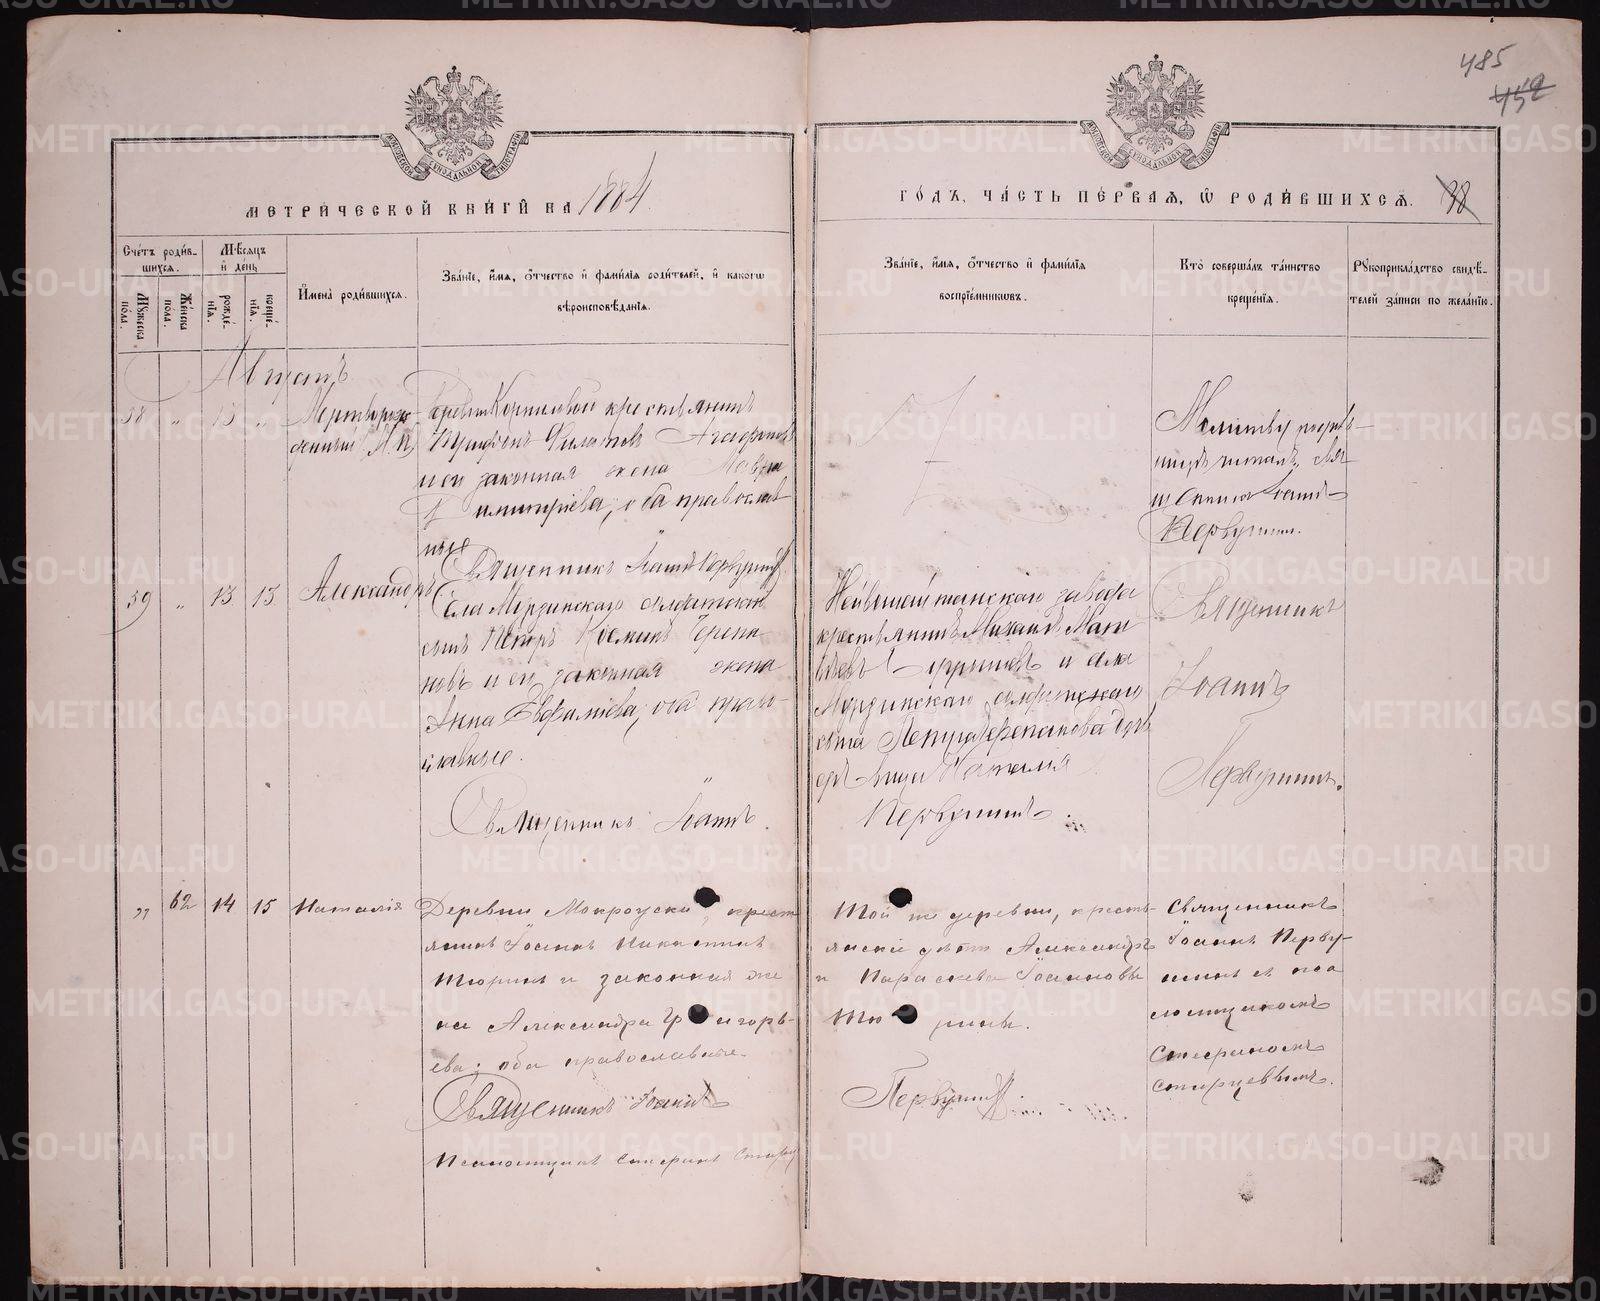 485
452
МЕТРИЧЕСКОЙ КНИГИ НА 1884
ГОДЪ, ЧАСТЬ ПЕРВАЯ, Ѡ РОДИВШИХСЯ. 38
Счетъ родив-
шихся.
Мужеска пола.
Женска пола.
Мѣсяцъ
и день
рожде-
нія.
креще-
нія.
Имена родившихся.
Званіе, имя, отчество и фамилія родителей, и какогѡ
вѣроисповѣданія.
Званіе, имя, отчество и фамилія
воспріемниковъ.
Кто совершалъ таинство
крещенія.
Рукоприкладство свидѣ-
телей записи по желанію.
Августъ
58 " 13 "
Мертворож-
денный М. п.
Деревни Корниловой крестьянинъ
Филатовъ Агафоновъ
и ея законная жена Мавра
Димитріева, оба православ
ные
Священникъ Іоаннъ Первушинъ
Молитву
читалъ свя
щенникъ Іоаннъ
Первушинъ.
59 " 13 13
Александръ
Села Мурзинскаго солдатскій
сынъ Петръ Козминъ Черепа
новъ и ея законная жена
Анна Евфиміева, оба право-
славные.
Священникъ Іоаннъ
Нейвошайтанскаго завода
крестьянинъ Михаилъ Мат
вѣевъ и села
Мурзинскаго солдатскаго
сына Петра Черепанова дочь
дѣвица Наталія
Первушинъ.
Священникъ
Іоаннъ
Первушинъ.
" 62 14 15
Наталія
Деревни Мокроуски, крест
янинъ Іоаннъ Никитинъ
Тюринъ и законная же
на Александра Григорь-
ева; оба православные.
Священникъ Іоаннъ
Псаломщикъ Старц
Той же деревни, кресть-
янскіе дѣти Александръ
и Параскева Іоанновы
Тюрины.
Первушинъ
Священникъ
Іоаннъ Перву-
шинъ съ пса
ломщикомъ
Старцевымъ.
METRIKI.GASO-URAL.RU